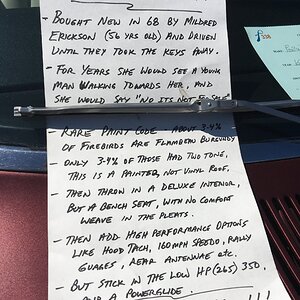 - BOUGHT NEW IN 68 BY MILDRED
ERICKSON (56 YRS OLD) AND DRIVEN
UNTIL THEY TOOK THE KEYS AWAY.
- FOR YEARS SHE WOULD SEE A YOUNG
MAN WALKING TOWARDS HER, AND
SHE WOULD SAY "NO ITS NOT
- RARE PAINT CODE ABOUT 3-4%
OF FIREBIRDS ARE FLAMBEAU BURGUNDY
- ONLY 3-4% OF THOSE HAD TWO TONE,
THIS IS A PAINTED, NOT VINYL ROOF,
- THEN THROW IN A DELUXE INTERIOR,
BUT A BENCH SEAT, WITH NO COMFORT
WEAVE IN THE PLEATS.
- THEN ADD HIGH PERFORMANCE OPTIONS
LIKE HOOD TACH, 160 MPH SPEEDO, RALLY
GUAGES, REAR ANTENNAE etc.
- BUT STICK IN THE LOW HP (265) 350,
AND A POWERGLIDE.
!!!